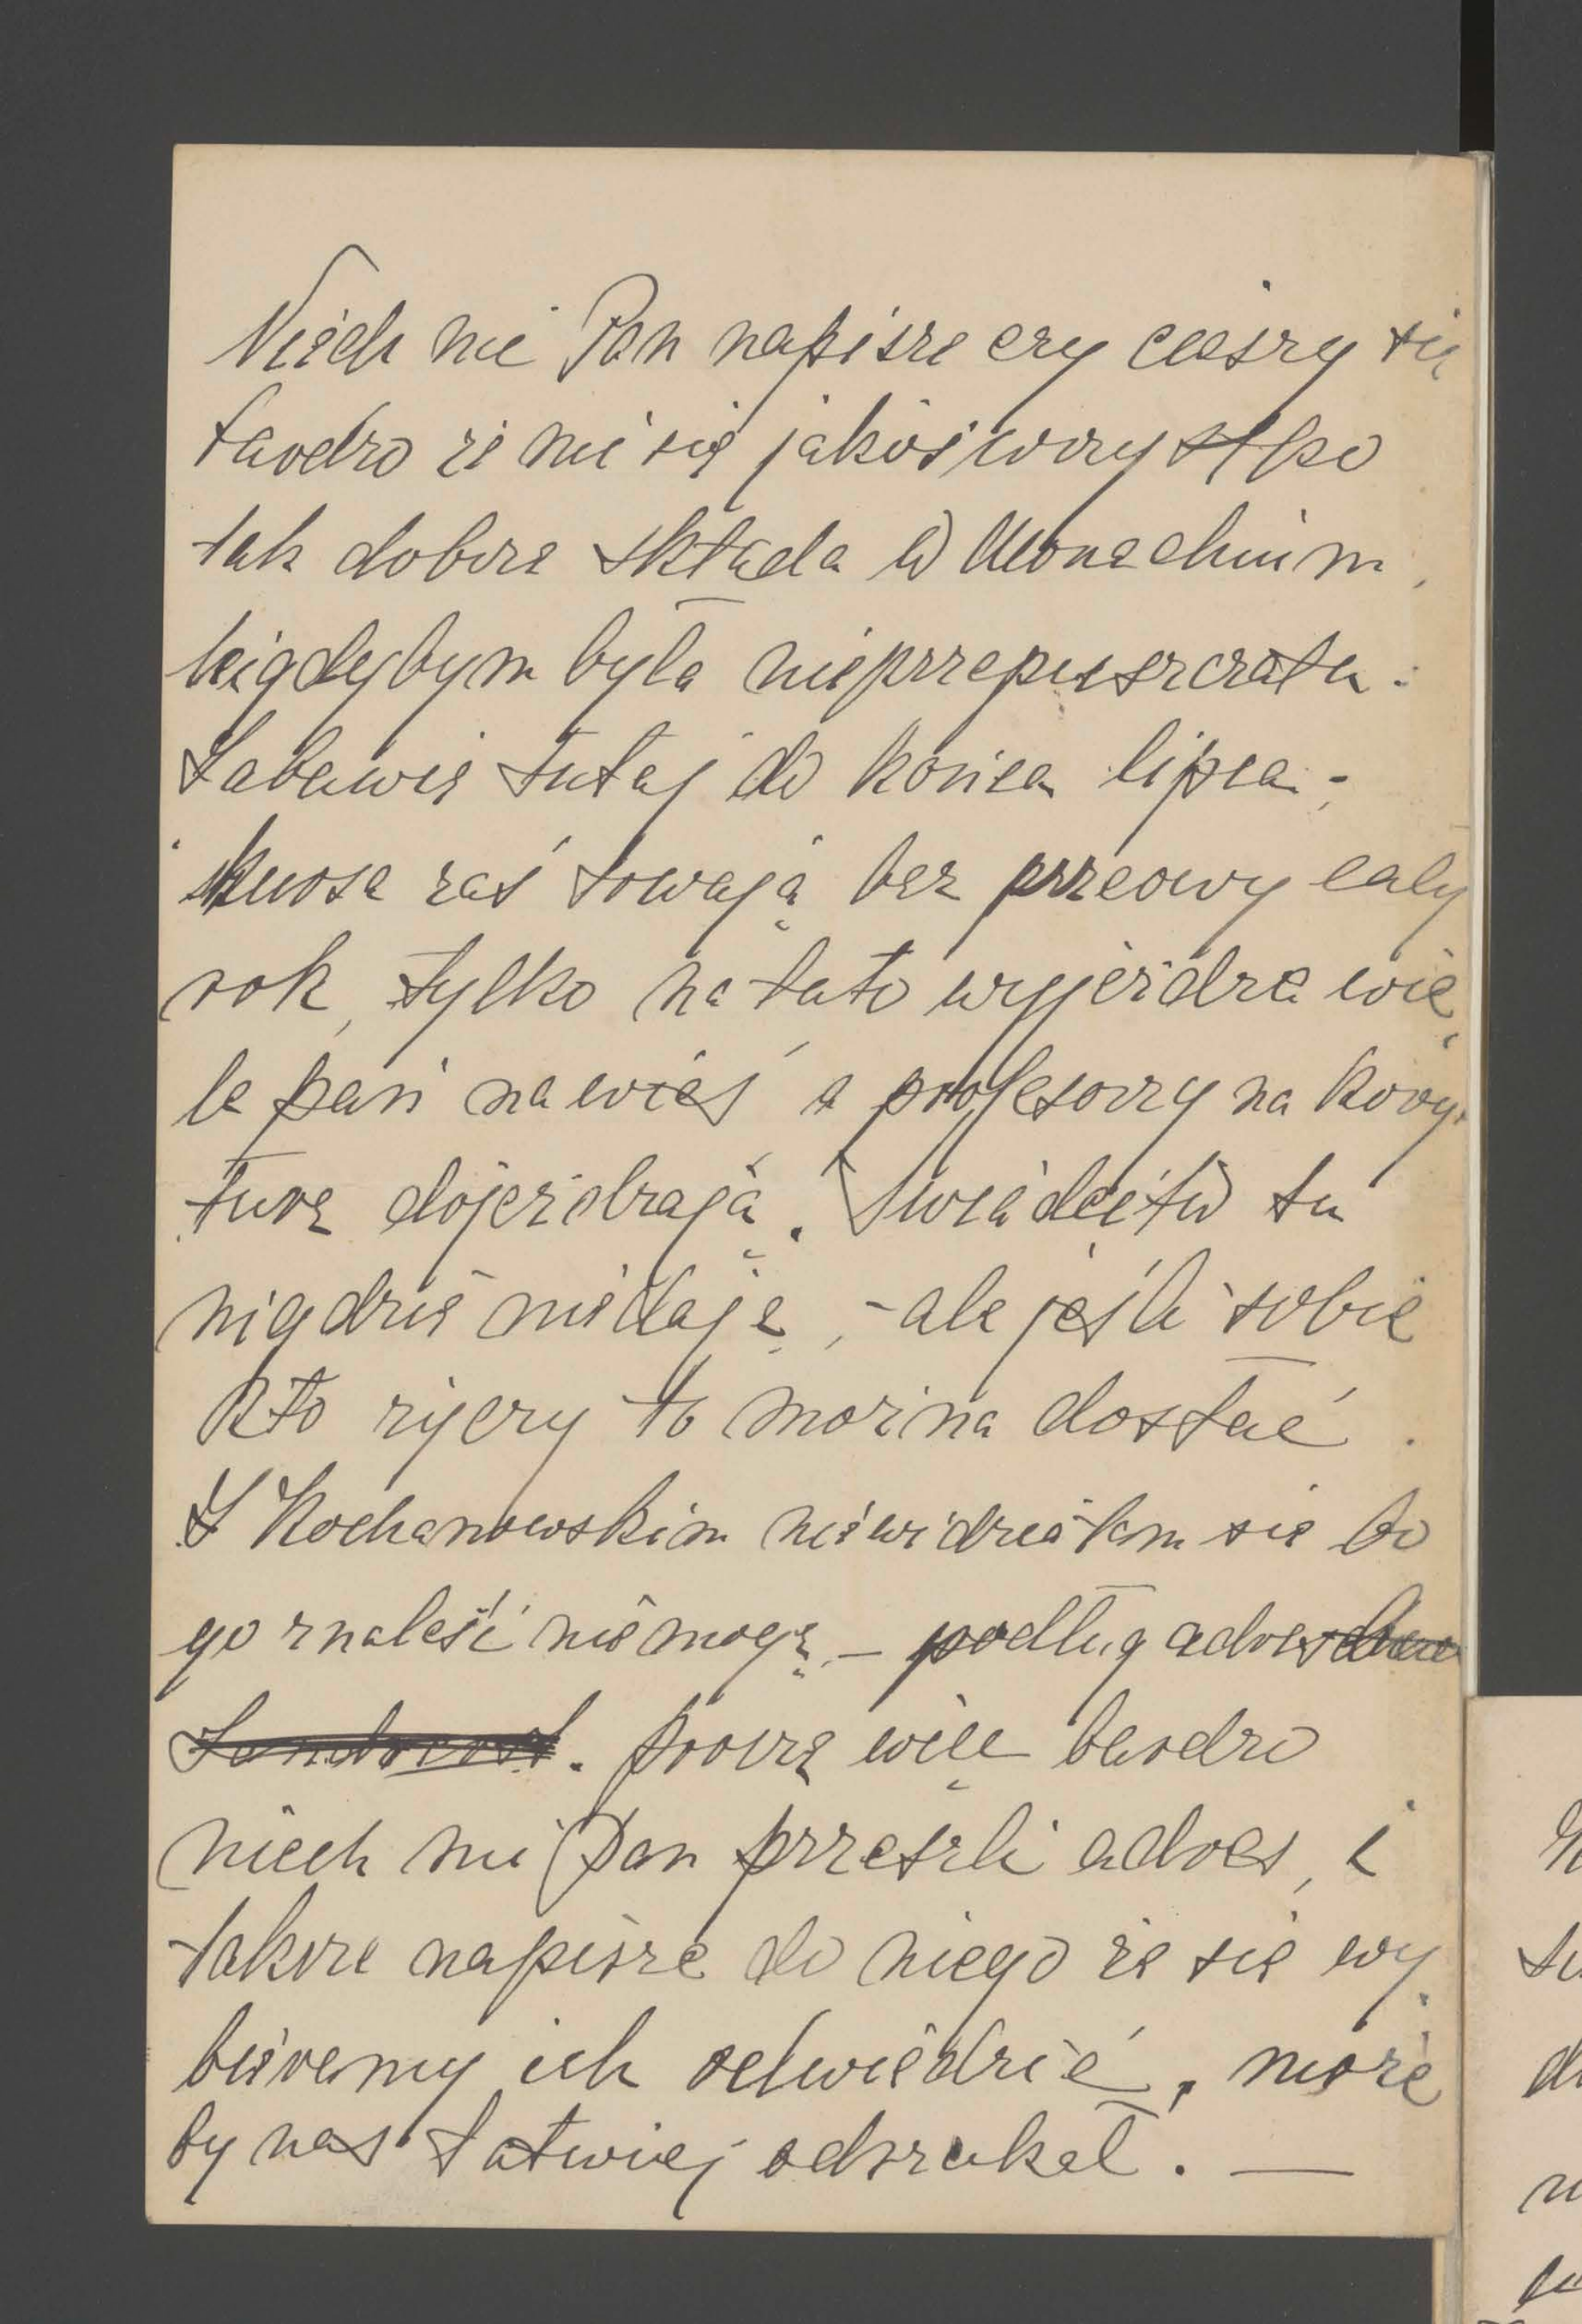 Niech mi Pan napisze czy cieszy się
bardzo że mi się jakoś wszystko
tak dobrze składa w Monachium,
nigdybym była nieprzepuszczała.
Zabawię tutaj do końca lipca -
kursa zaś trwają bez przerwy cały
rok, tylko na lato wyjeżdża wie
le pań na wieś a profesorzy na kory
turę dojeżdżają. Świadectw tu
nigdzie nie dają, - ale jeśli sobie
kto życzy to można dostać.
Z Kochanowskim nie widziałam się bo
go znaleść nie mogę, - podług adresu
. Proszę więc bardzo
niech mi Pan prześzli adres, i
także napisze do niego że się wy
bieramy ich odwiedzić, może
by nas łatwiej odszukał. —